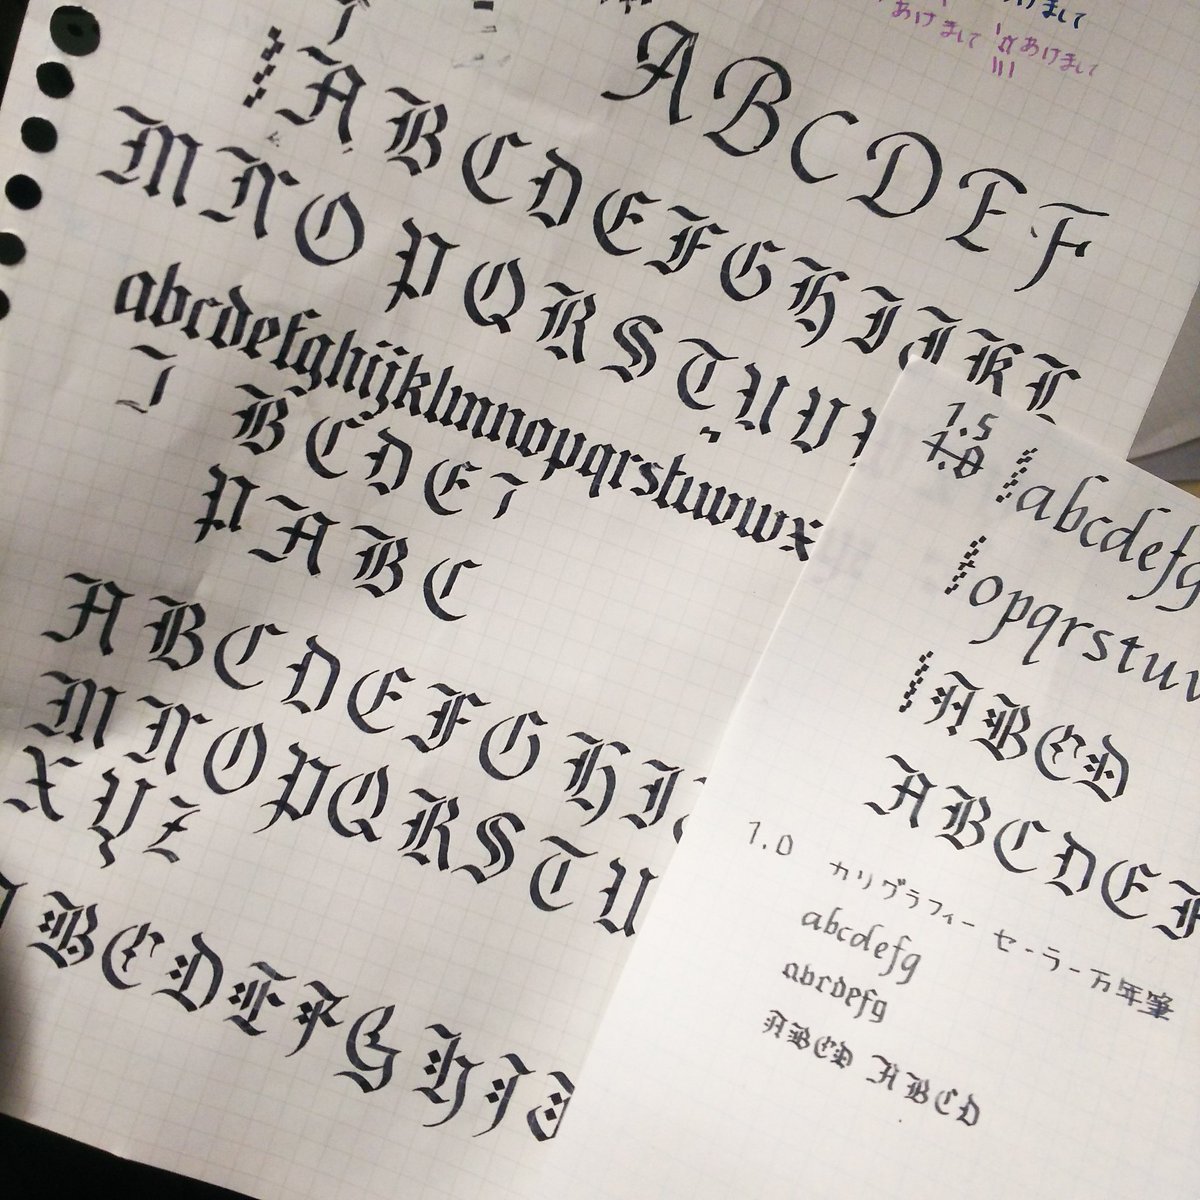 あけまして
あけまして
あけまして
ABCDEF
ABCDEFGHIJKL
MNOPQRSTUV
abcdefghijklmnopqrstuvwx
J BCDE
PABC
ABCDEFGHI
MNOPQRSTU
XYZ
BCDEFGHIJ
1.5
1.0
abcdefg
opqrstuv
ABCD
ABCDEF
1.0 カリグラフィー セーラー万年筆
abcdefg
abcdefg
ABCD ABCD